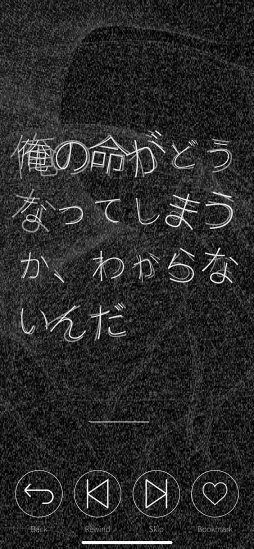 俺の命がどう
なってしまう
か、わからな
いんだ
Back
Rewind
Skip
Bookmark